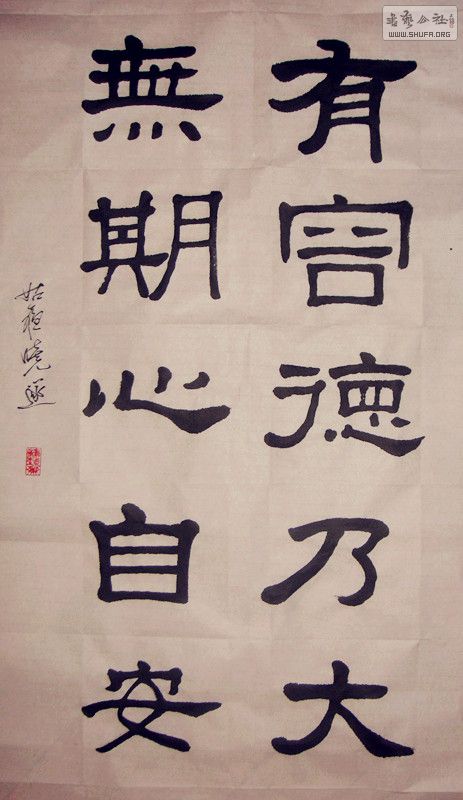 有容德乃大
無期心自安
書藝公社
WWW.SHUFA.ORG